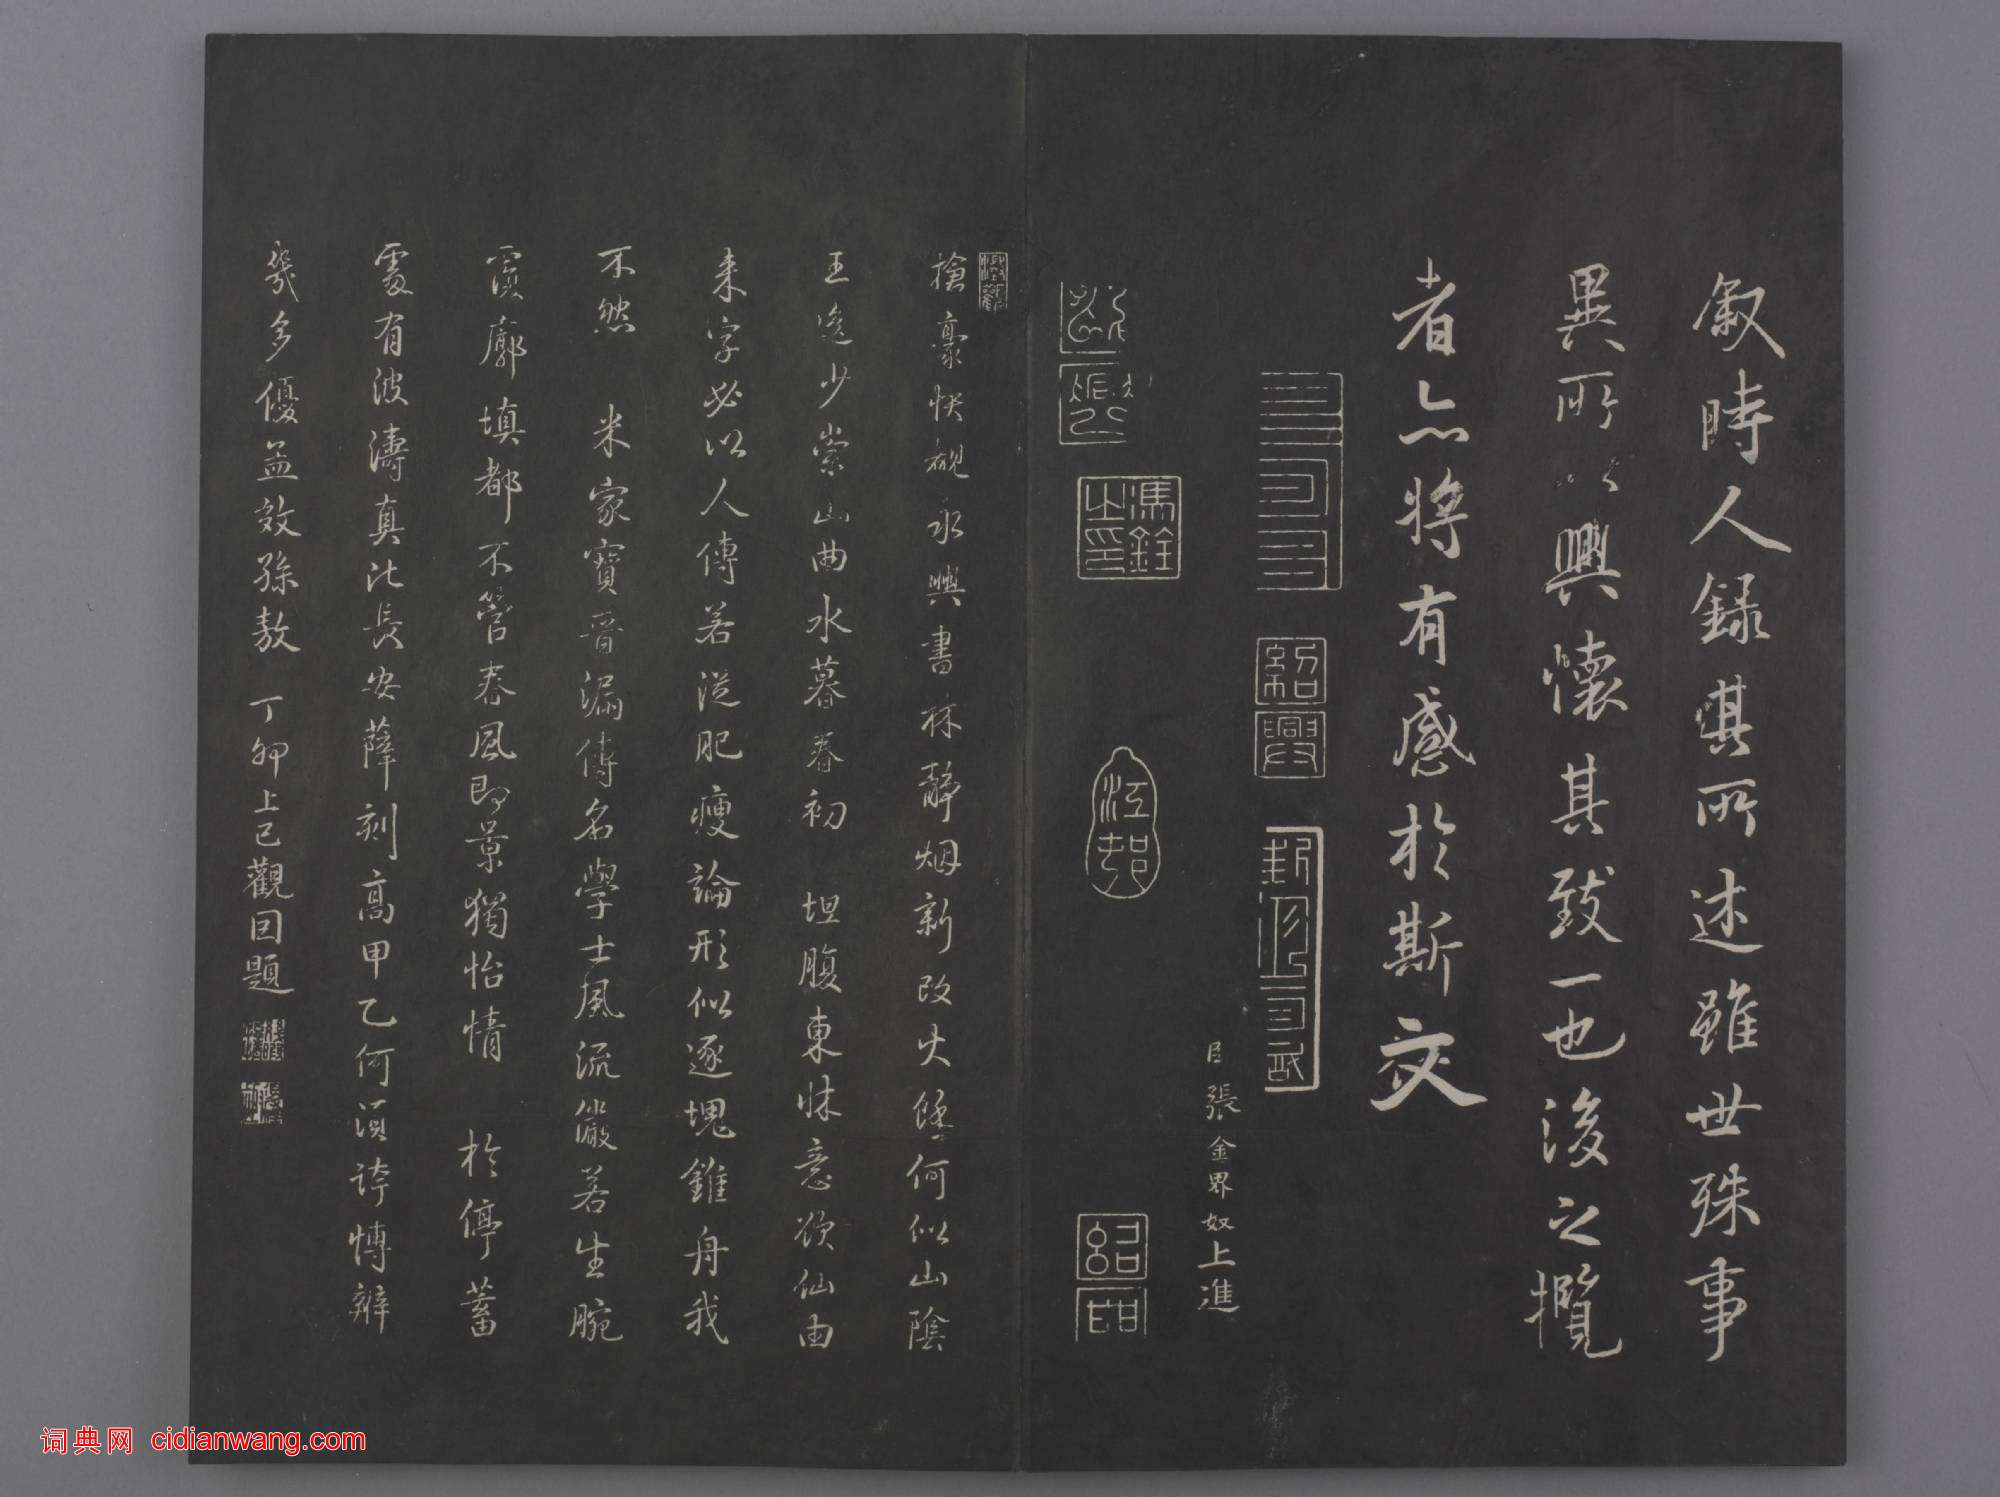 叙時人録其所述雖世殊事
異所以興懷其致一也後之攬
者亦將有感於斯文
紹興
臣張金界奴上進
馮銓之印
江邨
搶豪快覩永興書棐静烟新改火餘何似山陰
王逸少崇山曲水暮春初 坦腹東牀意欲仙由
来字必以人傳若從肥瘦論形似逐塊雖舟我
不然 米家寳晋漏傳名學士風流儼若生腕
寂廓填都不管春風即景獨怡情 於停蓄
處有波濤真比長安薛刻高甲乙何須誇慱辨
幾多優孟效孫敖 丁卯上巳觀因題
词典网 cidianwang.com